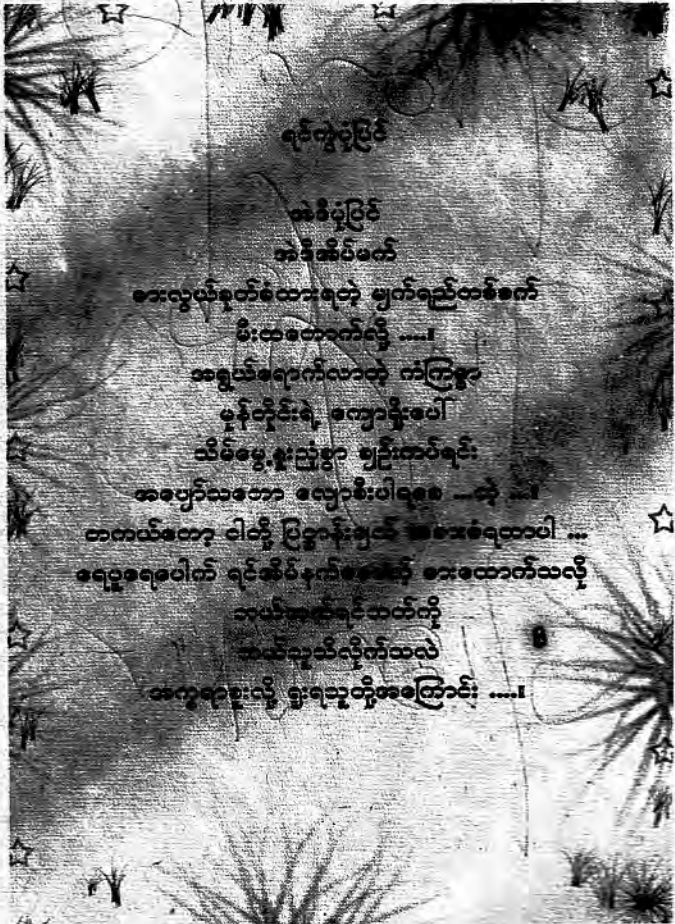 ရင်ကွဲပုံပြင်
အဲဒီပုံပြင်
အဲဒီအိပ်မက်
ဓားလွယ်ခုတ်ခံထားရတဲ့ မျက်ရည်တစ်စက်
မီးထတောက်လို့ ....။
အရွယ်ရောက်လာတဲ့ ကံကြမ္မာ
မုန်တိုင်းရဲ့ ကျောရိုးပေါ်
သိမ်မွေ့နူးညံ့စွာ ချဉ်းကပ်ရင်း
အပျော်သဘော လျှောစီးပါရစေ ...တဲ့ ...။
တကယ်တော့ ငါတို့ ပြဋ္ဌာန်းချက် အစားခံရတာပါ ...
ရေပူရေပေါက် ရင်အိမ်နက် ဓားထောက်သလို
ဘယ်သူသိလိုက်သလဲ
အက္ခရာစူးလို့ ရူးရသူတို့အကြောင်း ....။